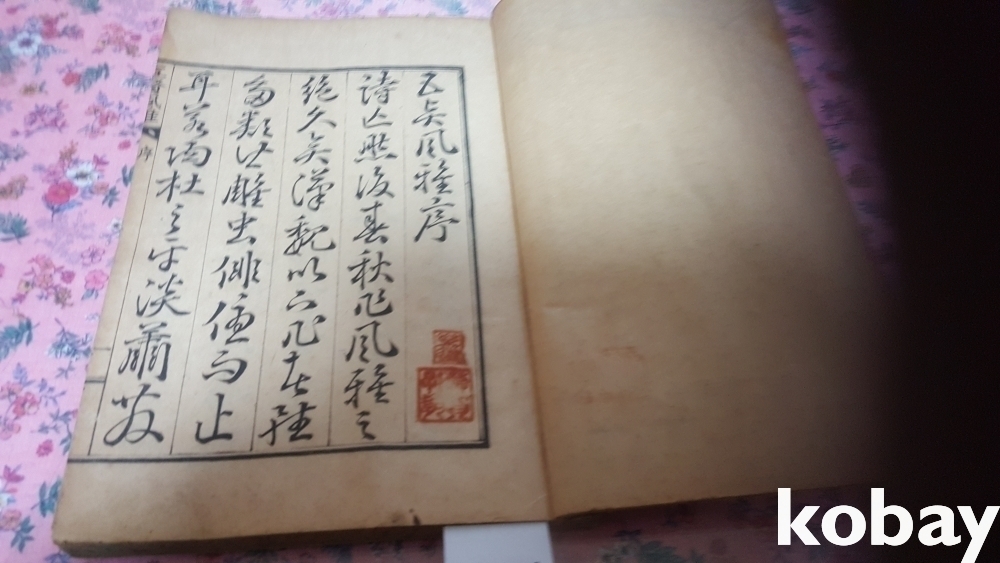 五風雅序
詩亡然後春秋作風雅之
絶久矣漢魏以下作者雖
多類雕虫俳優而止
耳若陶杜之平淡蕭散
序
kobay